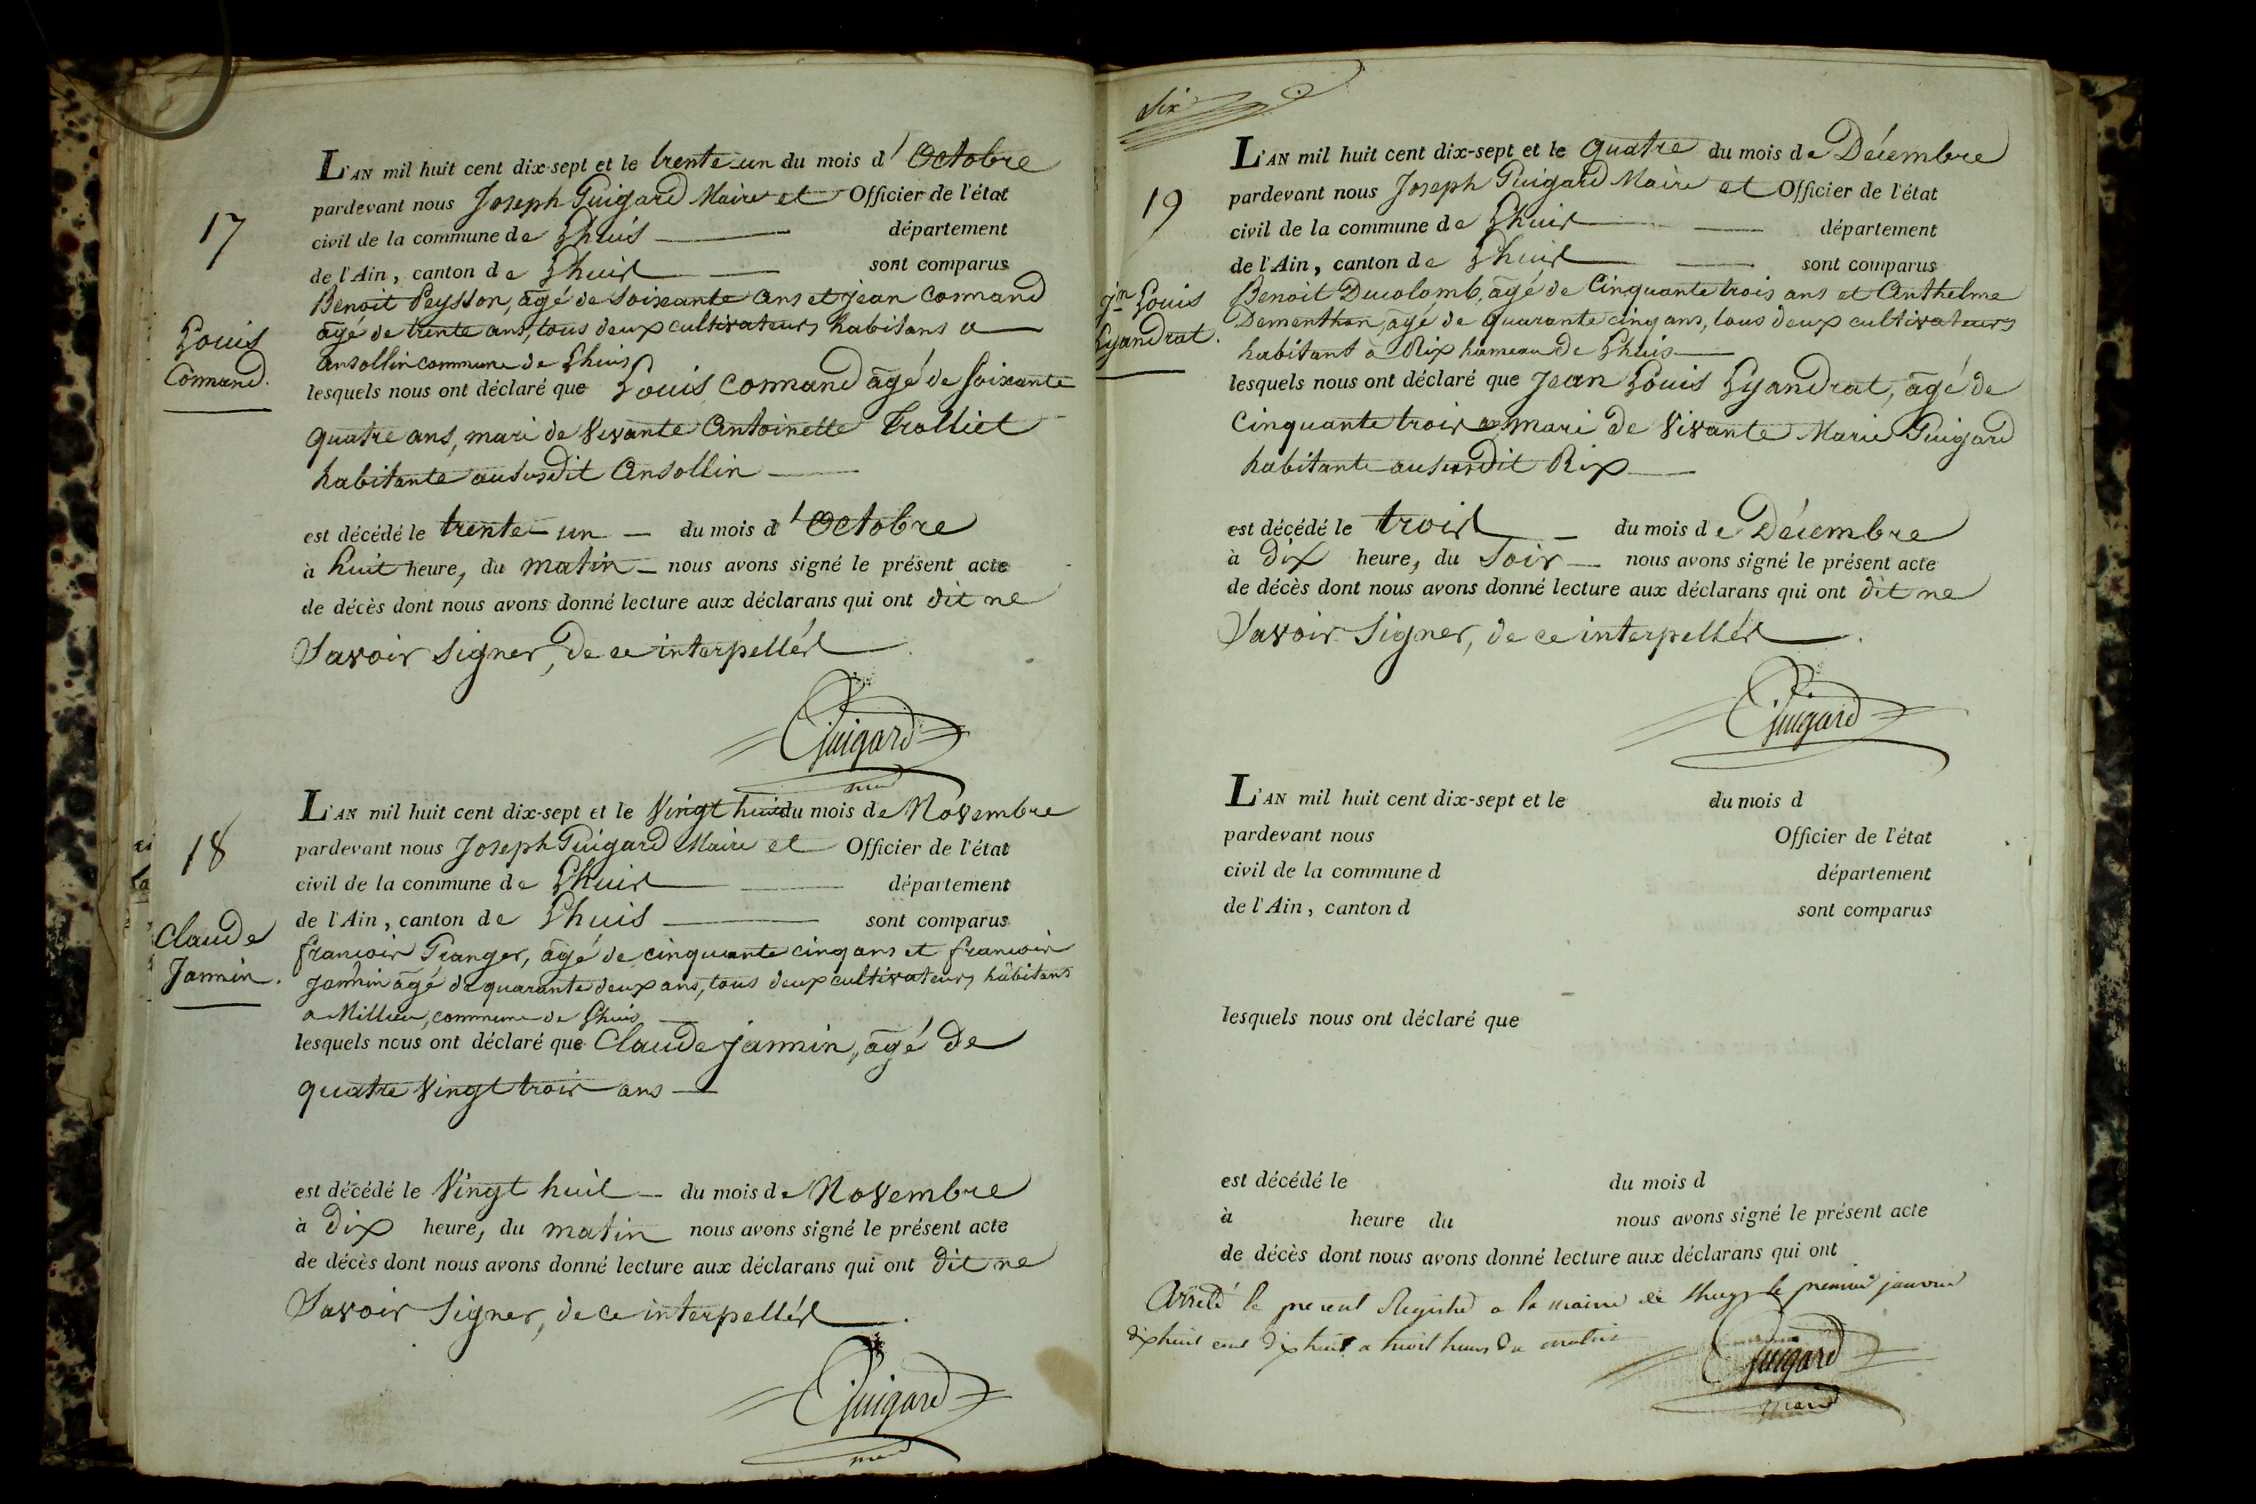 17
Louis
Connand.
L'AN mil huit cent dix-sept et le trente-un du mois d'Octobre
pardevant nous Joseph Guigard Maire et Officier de l'état
civil de la commune de Lhuis département
de l'Ain, canton de Lhuis sont comparus
Benoit Peysson, agé de soixante ans et jean Connand
agé de trente ans, tous deux cultivateurs habitans a
ansollin commune de Lhuis
lesquels nous ont déclaré que Louis Connand agé de soixante
quatre ans, mari de vivante Antoinette Trolliet
habitante au susdit Ansollin
est décédé le trente-un du mois d'Octobre
à huit heure, du matin nous avons signé le présent acte
de décès dont nous avons donné lecture aux déclarans qui ont dit ne
Savoir signer, de ce interpellés
Guigard
18
Claude
Jannin.
L'AN mil huit cent dix-sept et le Vingt huit du mois de Novembre
pardevant nous Joseph Guigard Maire et Officier de l'état
civil de la commune de Lhuis département
de l'Ain, canton de Lhuis sont comparus
francois Granger, agé de cinquante cinq ans et francois
jannin agé de quarante deux ans, tous deux cultivateurs habitans
a Millieu, commune de Lhuis
lesquels nous ont déclaré que Claude jannin, agé de
quatre Vingt trois ans
est décédé le Vingt huit du mois de Novembre
à dix heure, du matin nous avons signé le présent acte
de décès dont nous avons donné lecture aux déclarans qui ont dit ne
Savoir Signer, de ce interpellés
Guigard
six
19
jn Louis
Lyandrat.
L'AN mil huit cent dix-sept et le quatre du mois de Décembre
pardevant nous Joseph Guigard Maire et Officier de l'état
civil de la commune de Lhuis département
de l'Ain, canton de Lhuis sont comparus
Benoit Ducolomb, agé de Cinquante trois ans et Anthelme
Dementhon, agé de quarante cinq ans, tous deux cultivateurs
habitant à Rix hameau de Lhuis
lesquels nous ont déclaré que Jean Louis Lyandrat, agé de
Cinquante trois ans mari de Vivante Marie Guigard
habitante au susdit Rix
est décédé le trois du mois de Décembre
à dix heure, du Soir nous avons signé le présent acte
de décès dont nous avons donné lecture aux déclarans qui ont dit ne
Savoir Signer, de ce interpellés
Guigard
L'AN mil huit cent dix-sept et le du mois d
pardevant nous Officier de l'état
civil de la commune d département
de l'Ain, canton d sont comparus
lesquels nous ont déclaré que
est décédé le du mois d
à heure du nous avons signé le présent acte
de décès dont nous avons donné lecture aux déclarans qui ont
Arrêté le present Registre a la mairie de Lhuys le premier janvier
dix huit cent dix huit a huit heures du matin
Guigard
maire